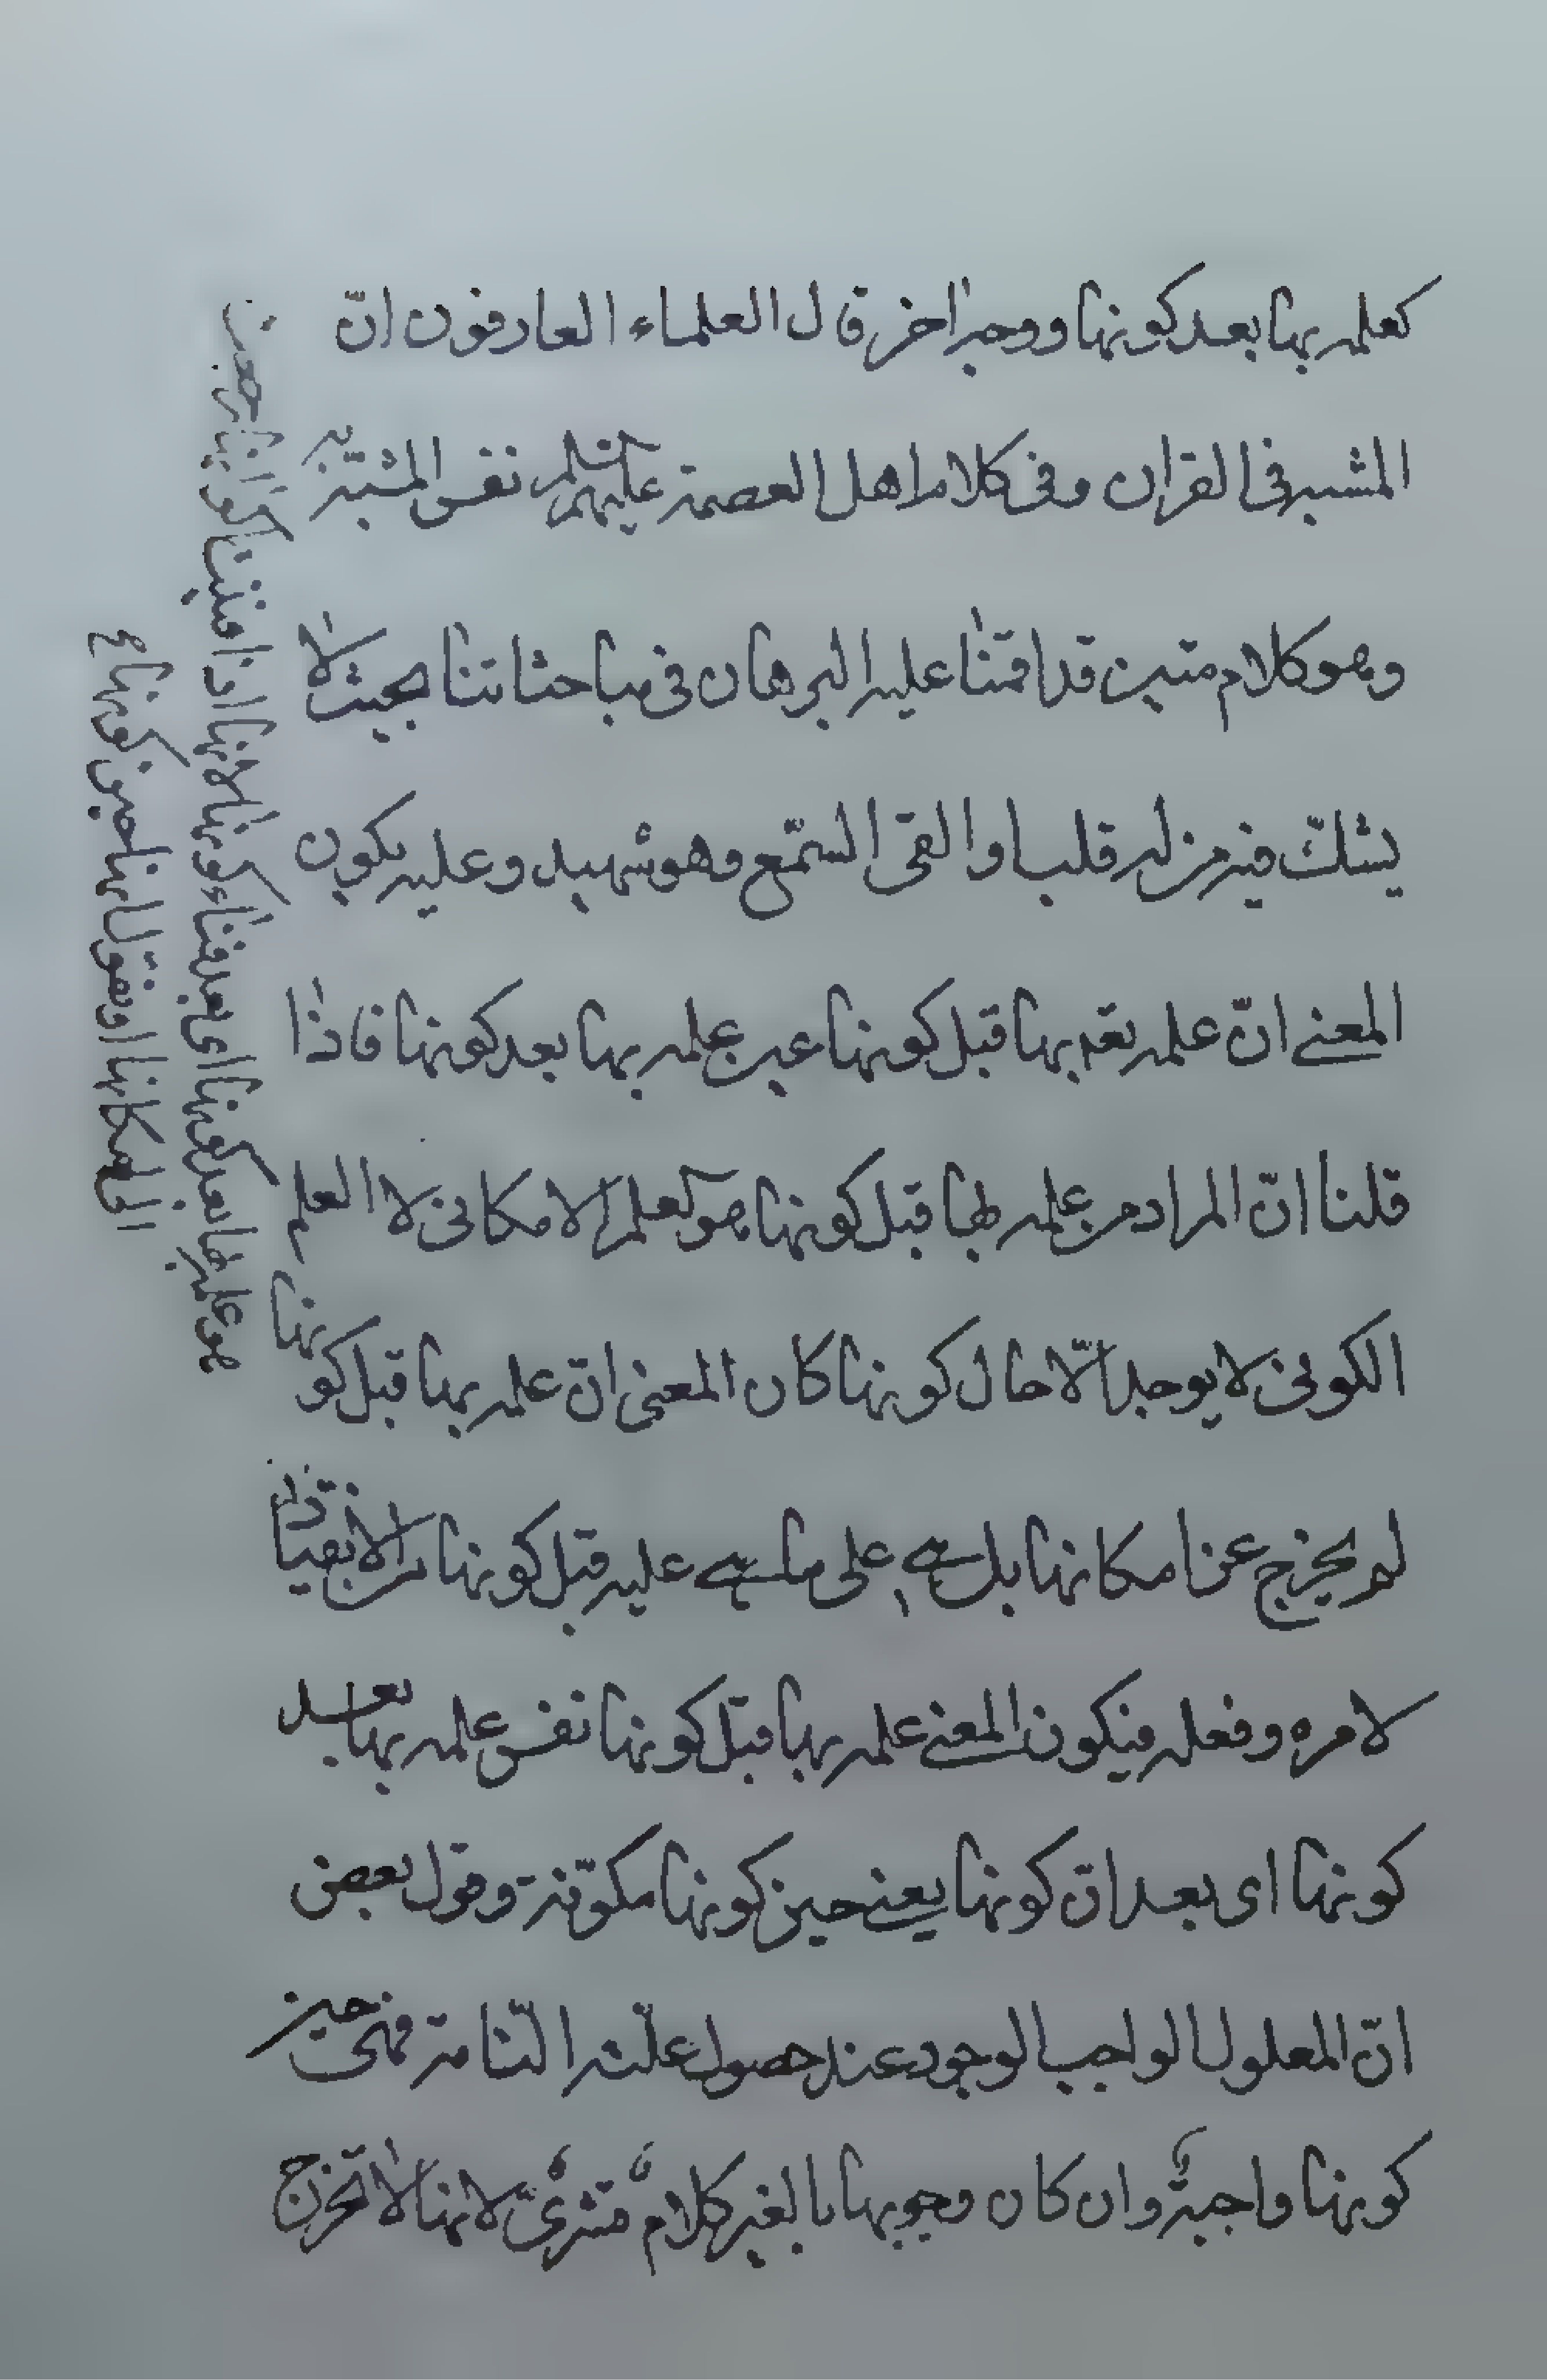 كعلمه بها بعد كونها ووجه اخر قال العلماء العارفون انّ
المشبه فى القران وفى كلام اهل العصمة عليهم السلم نفس المشبه به
وهو كلام متين قد اقمنا عليه البرهان فى مباحثاتنا بحيث لا
يشكّ فيه من له قلب او القى السّمع وهو شهيد وعليه يكون
المعنى انّ علمه تعه بها قبل كونها عين علمه بها بعد كونها فاذا
قلنا انّ المراد من علمه بها قبل كونها هو العلم الامكانى لا العلم
الكونى لا يوجد الّا حال كونها كان المعنى انّ علمه بها قبل كونها
لم يخرج عن امكانها بل هى على ما هى عليه قبل كونها من الانقياد
لامره وفعله فيكون المعنى علمه بها قبل كونها نفس علمه بها بعد
كونها اى بعد ان كونها يعنى حين كونها مكوّنة وقول بعض
انّ المعلول الواجب الوجود عند حصول علّته التّامة فهى حين
كونها واجبةٌ وان كان وجوبها بالغير كلامٌ قشرىٌّ لانها لا تخرج
هو علمه بها بعد كونها اى بعد فناء كونها
الى امكانها او نقول انها حين كونها